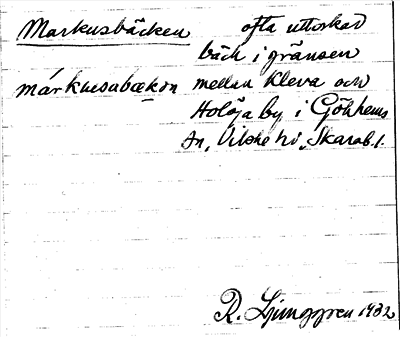 Markusbäcken ofta uttorkad
bäck i gränsen
márkusabækən mellan Kleva och
Holöja by i Gökhems
sn, Vilske hd, Skarab. l.
R. Ljunggren 1932